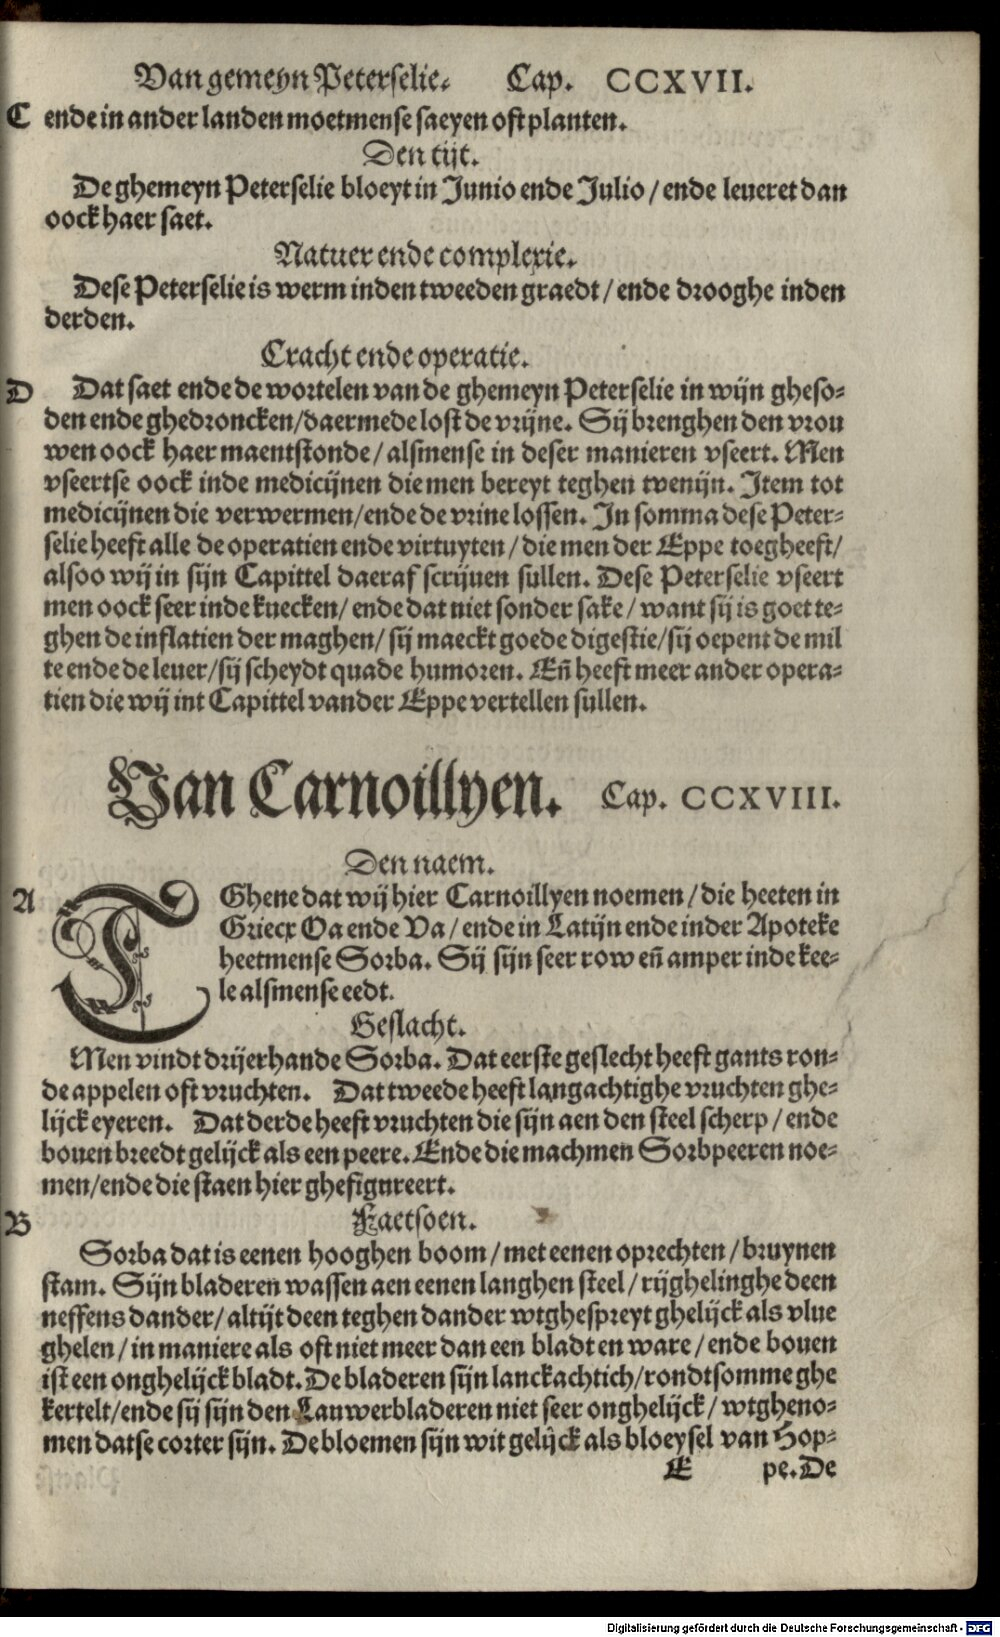 Van gemeyn Peterselie. Cap. CCXVII.
C ende in ander landen moetmense saeyen oft planten.
Den tijt.
De ghemeyn Peterselie bloeyt in Junio ende Julio / ende leueret dan
oock haer saet.
Natuer ende complexie.
Dese Peterselie is werm inden tweeden graedt / ende drooghe inden
derden.
Cracht ende operatie.
D Dat saet ende de wortelen van de ghemeyn Peterselie in wijn gheso-
den ende ghedroncken/daer mede lost de vrijne. Sij brenghen den vrou
wen oock haer maentstonde / alsmense in deser manieren vseert. Men
vseertse oock inde medicijnen die men bereyt teghen venijn. Item tot
medicijnen die verwermen/ende de vrine lossen. In somma dese Peter-
selie heeft alle de operatien ende virtuyten / die men der Eppe toegheeft/
alsoo wij in sijn Capittel daeraf scrijuen sullen. Dese Peterselie vseert
men oock seer inde kuecken/ ende dat niet sonder sake / want sij is goet te-
ghen de inflatien der maghen/ sij maeckt goede digestie/sij oepent de mil
te ende de leuer/sij scheydt quade humoren. Eñ heeft meer ander opera-
tien die wij int Capittel vander Eppe vertellen sullen.
Van Carnoillyen. Cap. CCXVIII.
Den naem.
A TGhene dat wij hier Carnoillyen noemen / die heeten in
Griecx Oa ende Va / ende in Latijn ende inder Apoteke
heetmense Sorba. Sij sijn seer row eñ amper inde kee-
le alsmense eedt.
Geslacht.
Men vindt drijerhande Sorba. Dat eerste geslecht heeft gants ron-
de appelen oft vruchten. Dat tweede heeft langachtighe vruchten ghe-
lijck eyeren. Dat derde heeft vruchten die sijn aen den steel scherp / ende
bouen breedt gelijck als een peere. Ende die machmen Sorbpeeren noe-
men/ende die staen hier ghefigureert.
B Faetsoen.
Sorba dat is eenen hooghen boom / met eenen oprechten / bruynen
stam. Sijn bladeren wassen aen eenen langhen steel / rijghelinghe deen
neffens dander / altijt deen teghen dander wtghespreyt ghelijck als vlue
ghelen / in maniere als oft niet meer dan een bladt en ware / ende bouen
ist een onghelijck bladt. De bladeren sijn lanckachtich/rondtsomme ghe
kertelt/ende sij sijn den Lauwerbladeren niet seer onghelijck / wtgheno-
men datse corter sijn. De bloemen sijn wit gelijck als bloeysel van Hop-
E pe. De
Digitalisierung gefördert durch die Deutsche Forschungsgemeinschaft - DFG